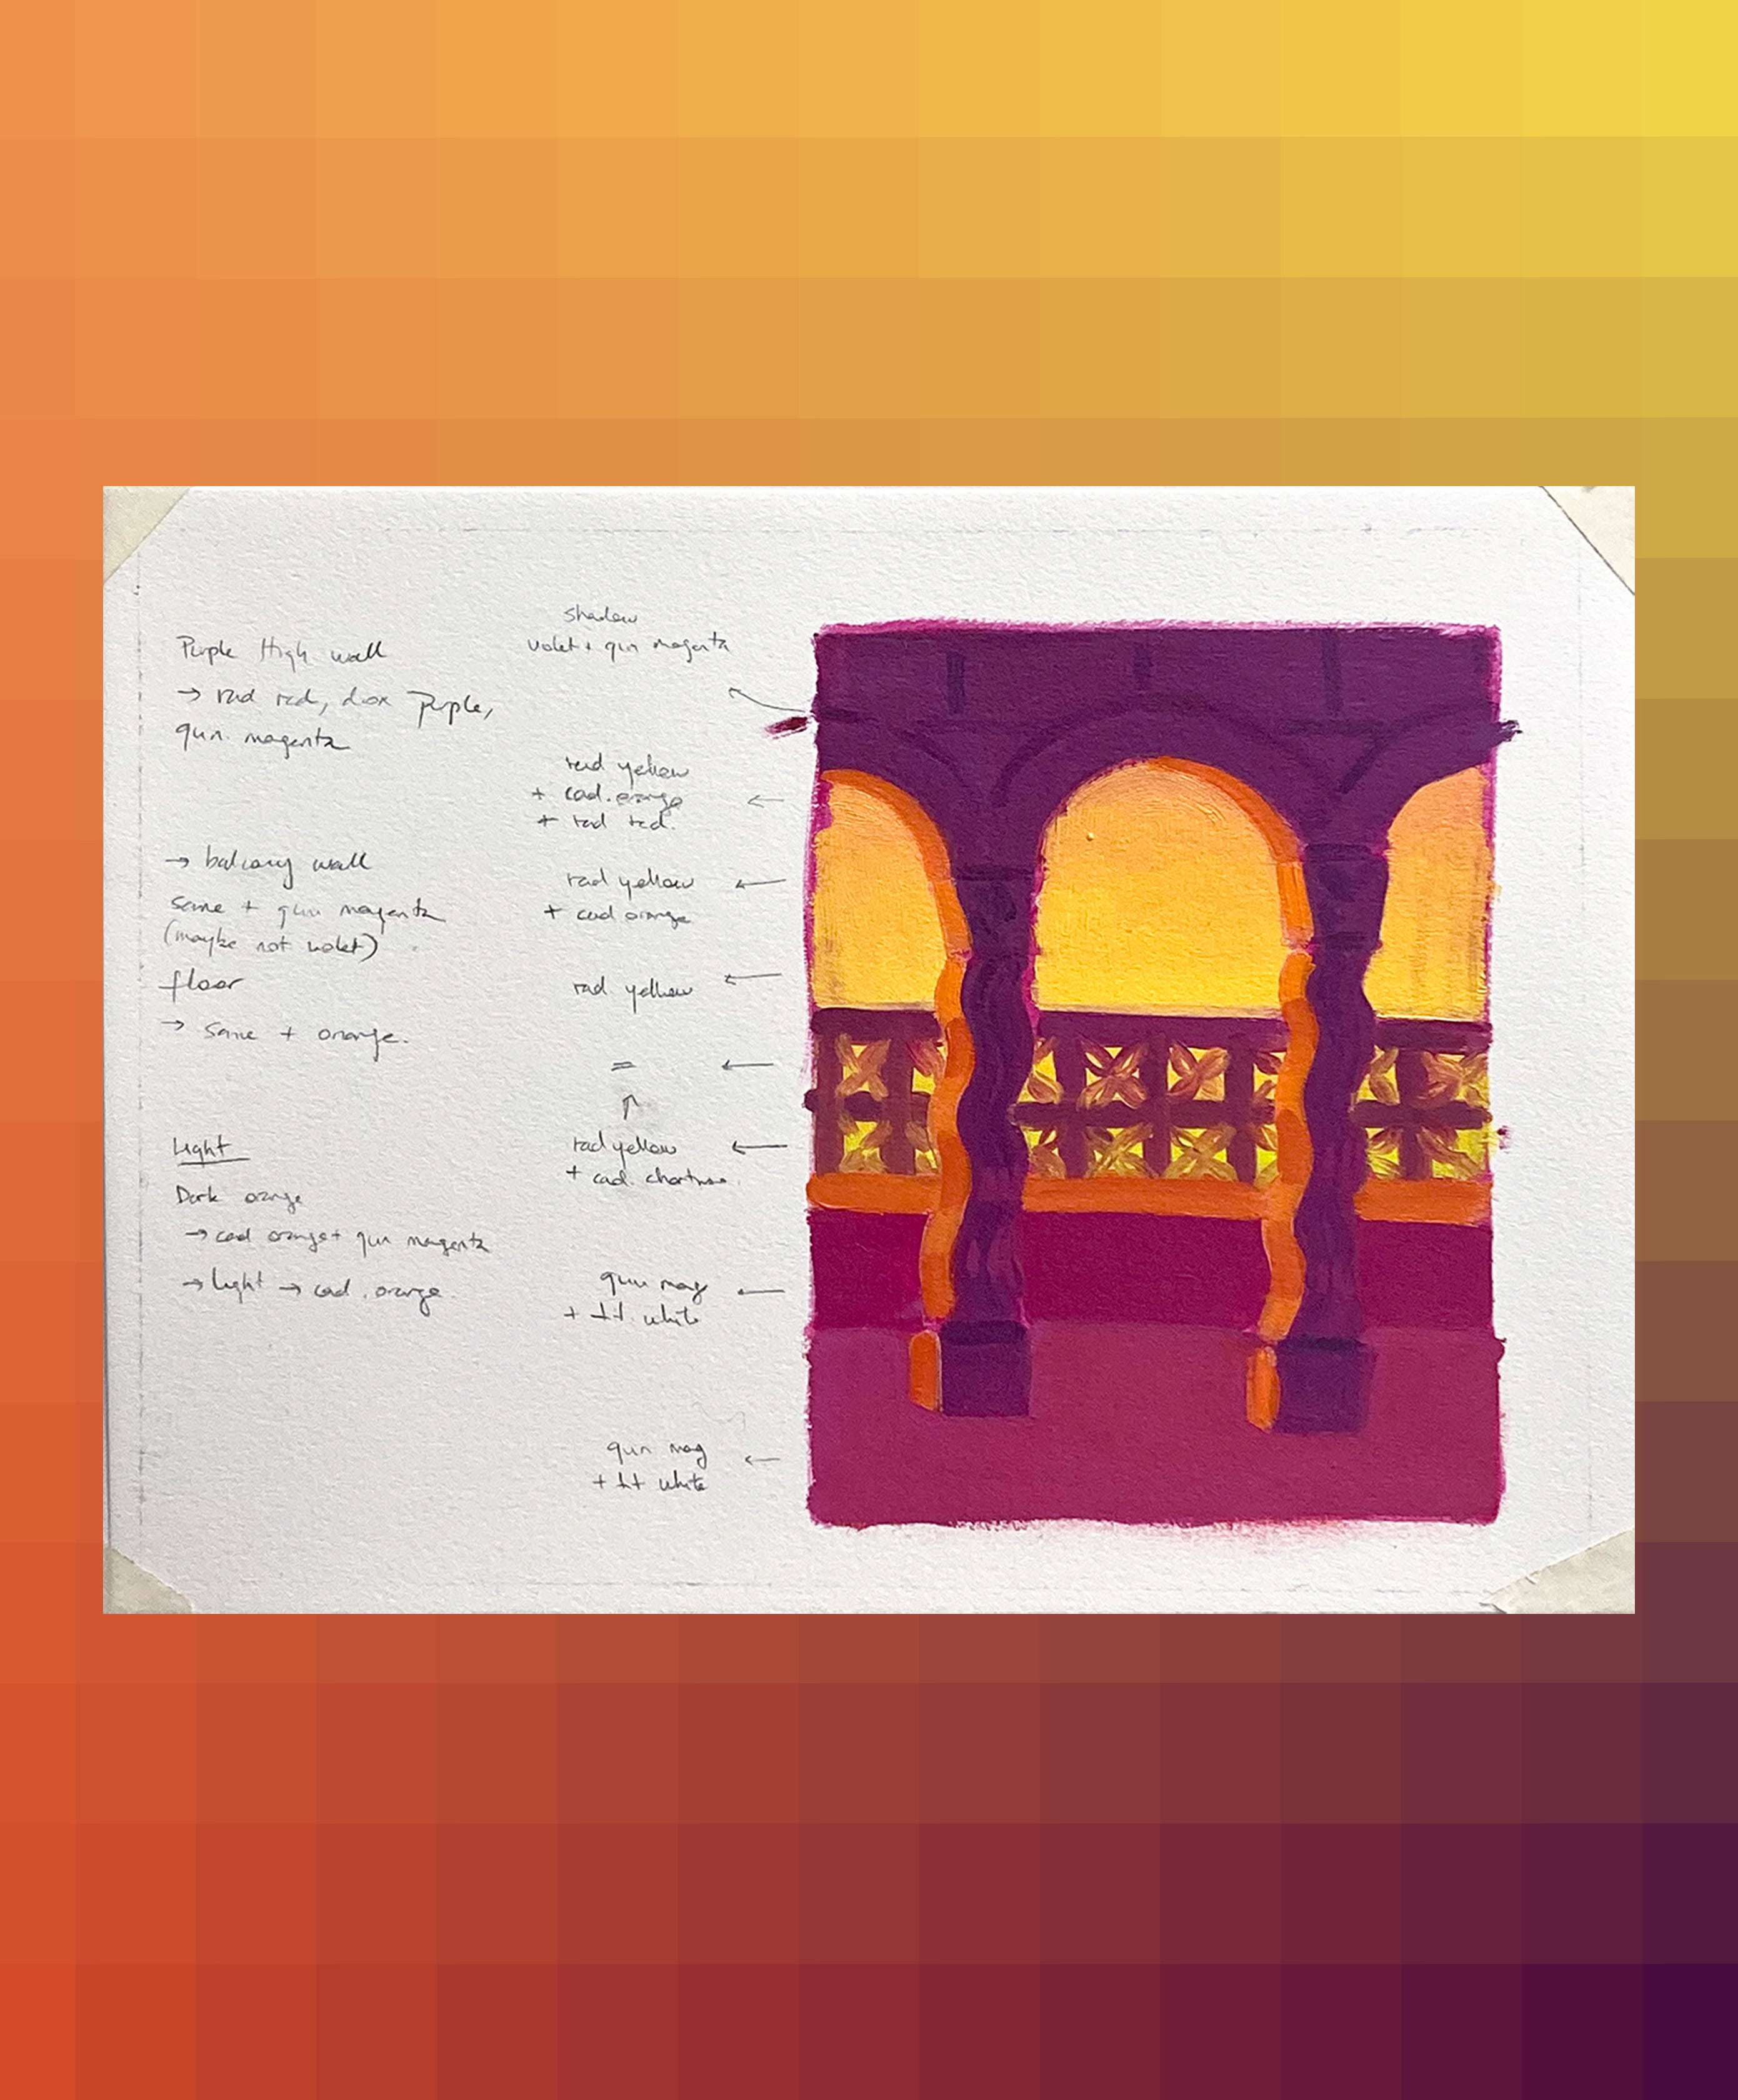 Purple High wall
→ rad red, diox purple,
qun. magenta
→ balcony wall
same + qun magenta
(maybe not violet)
floor
→ same + orange.
Light
Dark orange
→ cad orange + qun magenta
→ light → cad. orange.
shadow
violet + qun magenta
rad yellow
+ cad. orange
+ rad red.
rad yellow
+ cad orange
rad yellow
=
↑
rad yellow
+ cad. chartreuse.
qun mag
+ tit. white
qun mag
+ tit white